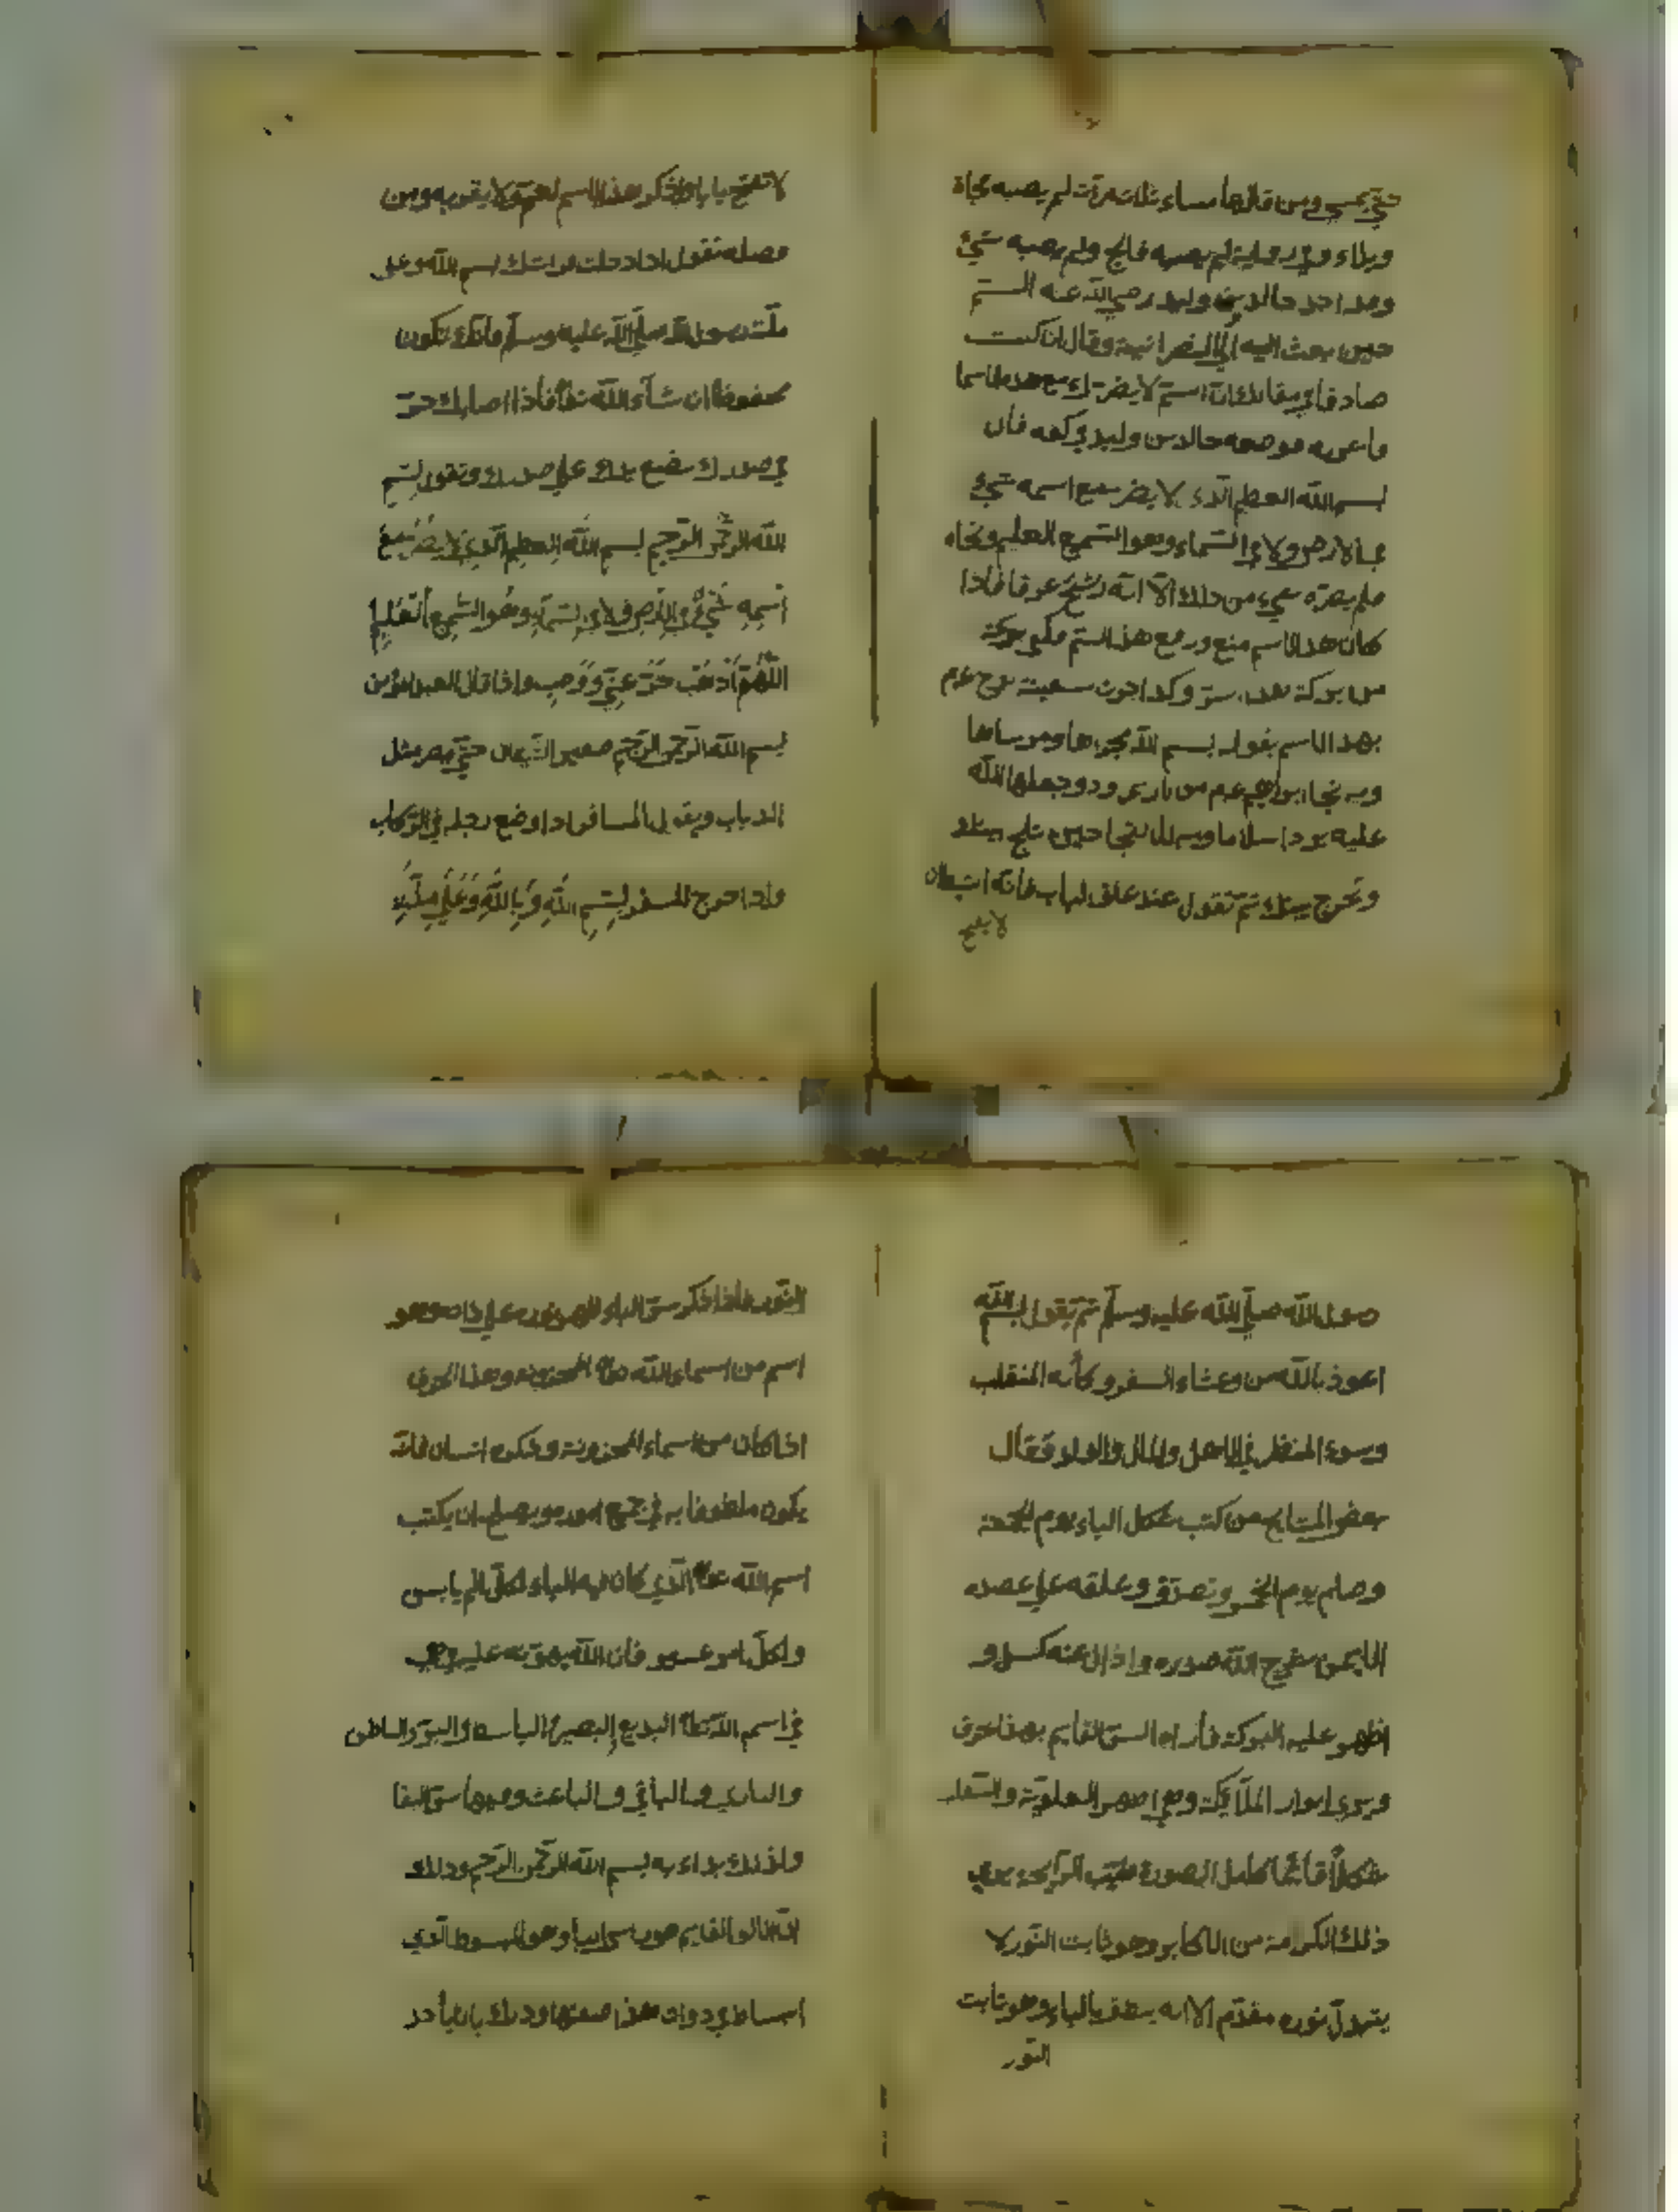 حتى يمسي ومن قالها مساء ثلاث مرات لم يصبه فجاة
وبلاء وفي رواية لم يصبه فالج ولم يصبه شيء
وقد اخذ خالد بن وليد رضي الله عنه السم
حين بعث اليه النصرانية وقال ان كنت
صادقا في مقالك ان السم لا يضرك مع هذا الاسما
فوضعه خالد بن وليد في كفه فقال
بسم الله العظيم الذي لا يضر مع اسمه شيء
في الارض ولا في السماء وهو السميع العليم
فلم يضره شيء من ذلك الا انه رشح عرقا فاذا
كان هذا الاسم منع ورفع هذا السم
من بركة هذا سر وكذا جرت سفينة نوح عم
بهذا الاسم بقوله بسم الله مجراها ومرساها
وبه نجا ابراهيم عم من نار نمرود وجعلها الله
عليه بردا سلاما حين تلج بيتك
وتخرج بيتك ثم تقول عند غلق الباب فانه الشيطان
لا يفتح
لا تفتح بابا اذا ذكر هذا الاسم ولا يقربه ومن
فصله تقول اذا دخلت فراشك بسم الله وعلى
ملت رسول الله صلى الله عليه وسلم فانك تكون
محفوظا ان شاء الله تعا فاذا اصابك حر
في صدرك تضع يدك على صدرك وتقول بسم
الله الرحمن الرحيم بسم الله العظيم الذي لا يضر مع
اسمه شيء في الارض ولا في السماء وهو السميع العليم
اللهم اذهب حر عني ووصب واذا قال العبد المؤمن
بسم الله الرحمن الرحيم صغير الشيطان حتى يصر مثل
الذباب ويقول المسافر اذا وضع رجله في الركاب
واذا خرج للسفر بسم الله وبالله وعلى ملة
رسول الله صلى الله عليه وسلم ثم يقول بسم الله
اعوذ بالله من وعثاء السفر وكأبه المنقلب
وسوء المنظر في الاهل والمال والولد فقال
بعض المشايخ من كتب شكل الباء يوم الجمعة
وصام يوم الخميس وتصدق وعلقه على عضده
الايمن يفرج الله صدره واذال عنه كسل و
اظهر عليه البركة السر القايم بهذا حرف
ويرى انوار الملائكة العلوية والسفلي
شكلا قائما كامل الصورة طيب الرايحة
ذلك الكرامة من الاكابر وهو ثابت النور لا
يتبدل نوره مقدم الا انه ينطق بالباء وهو ثابت
النور
النور فاذا ذكر سر الباء على ذاته وهو
اسم من اسماء الله تعا المخزونة وهذا الحرف
اذا كان من اسماء المخزونة وذكره انسان فانه
يكون ملطوفا به في جميع اموره ويصلح ان يكتب
اسم الله تعا الذي كان فيه الباء لكل الم يابس
ولكل امر عسير فان الله يهونه عليه
في اسم الله تعا البديع البصير الباسط والبر والباطن
والباري والباقي والباعث وفيها سر البقا
ولذلك بداء به بسم الله الرحمن الرحيم وذلك
وهو المبسوط الذي